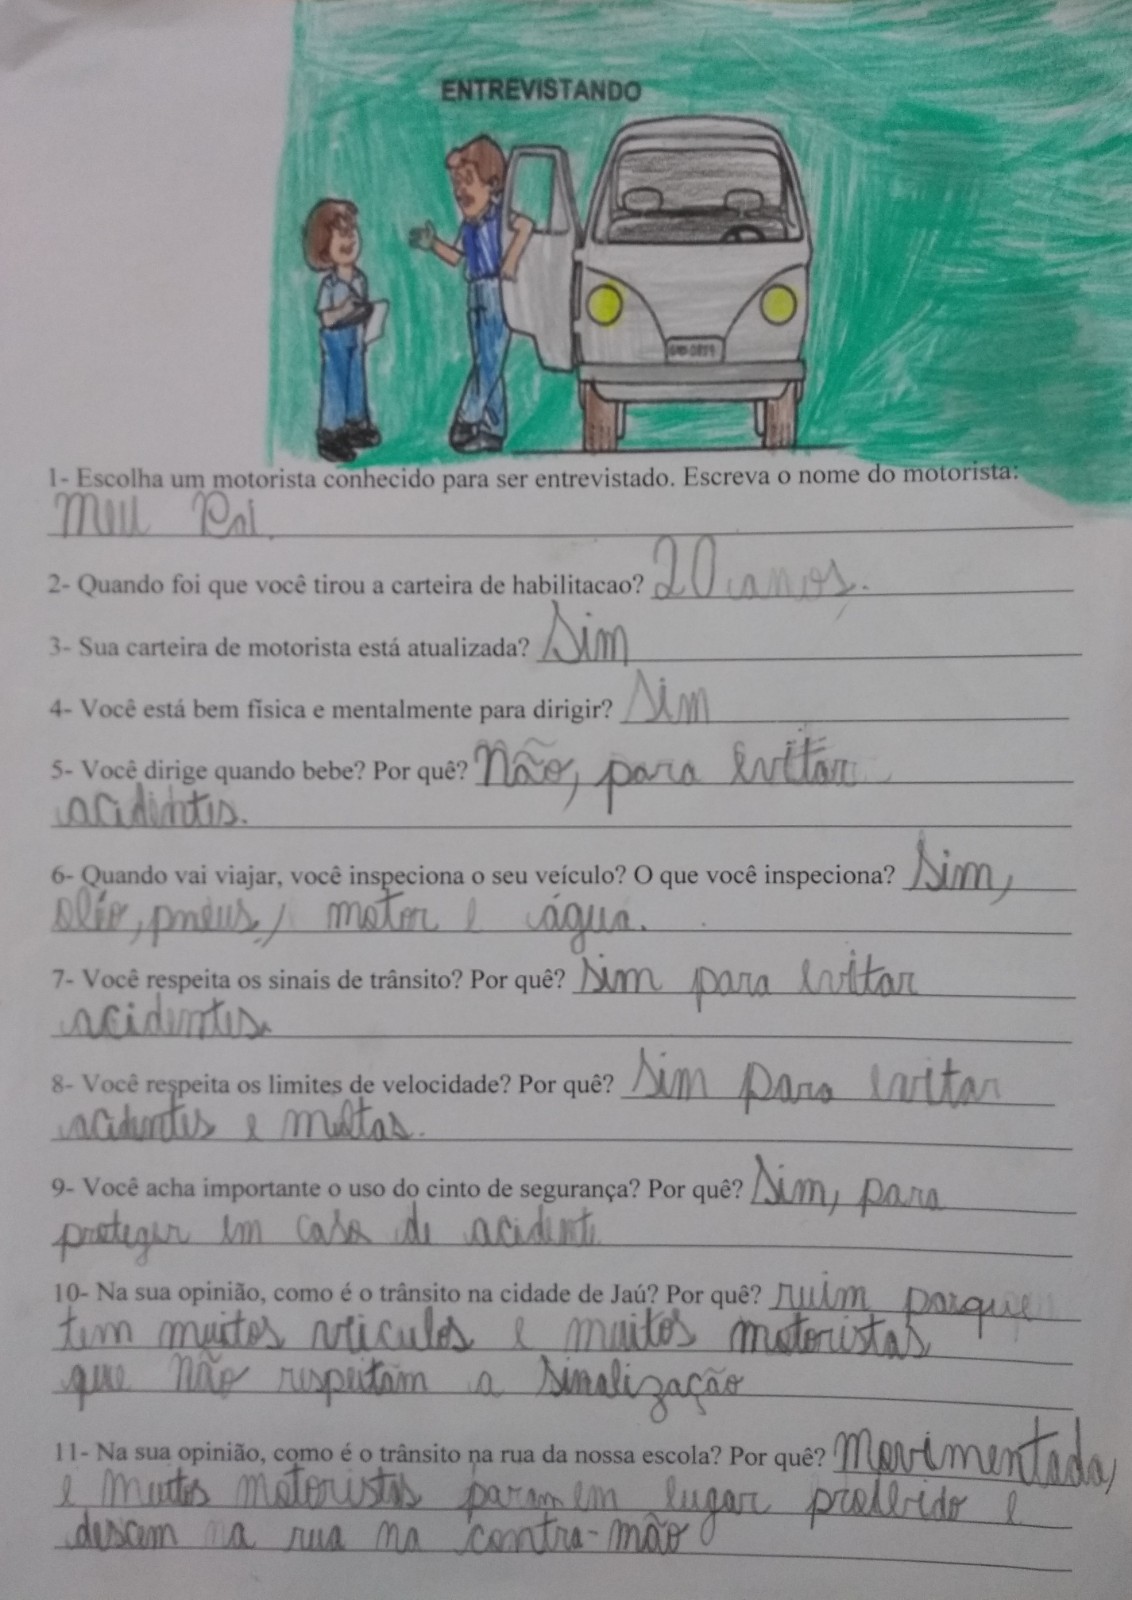 ENTREVISTANDO
1- Escolha um motorista conhecido para ser entrevistado. Escreva o nome do motorista:
Meu Pai.
2- Quando foi que você tirou a carteira de habilitacao? 20 anos.
3- Sua carteira de motorista está atualizada? Sim
4- Você está bem física e mentalmente para dirigir? Sim
5- Você dirige quando bebe? Por quê? Não, para evitar
acidentes.
6- Quando vai viajar, você inspeciona o seu veículo? O que você inspeciona? Sim,
oléo, pneus, motor e água.
7- Você respeita os sinais de trânsito? Por quê? Sim para evitar
acidentes.
8- Você respeita os limites de velocidade? Por quê? Sim para evitar
acidentes e multas.
9- Você acha importante o uso do cinto de segurança? Por quê? Sim, para
proteger em caso de acidente.
10- Na sua opinião, como é o trânsito na cidade de Jaú? Por quê? ruim porque
tem muitos veiculos e muitos motoristas
que não respeitam a sinalização
11- Na sua opinião, como é o trânsito na rua da nossa escola? Por quê? Movimentada,
e muitos motoristas param em lugar proibido e
descem a rua na contra-mão